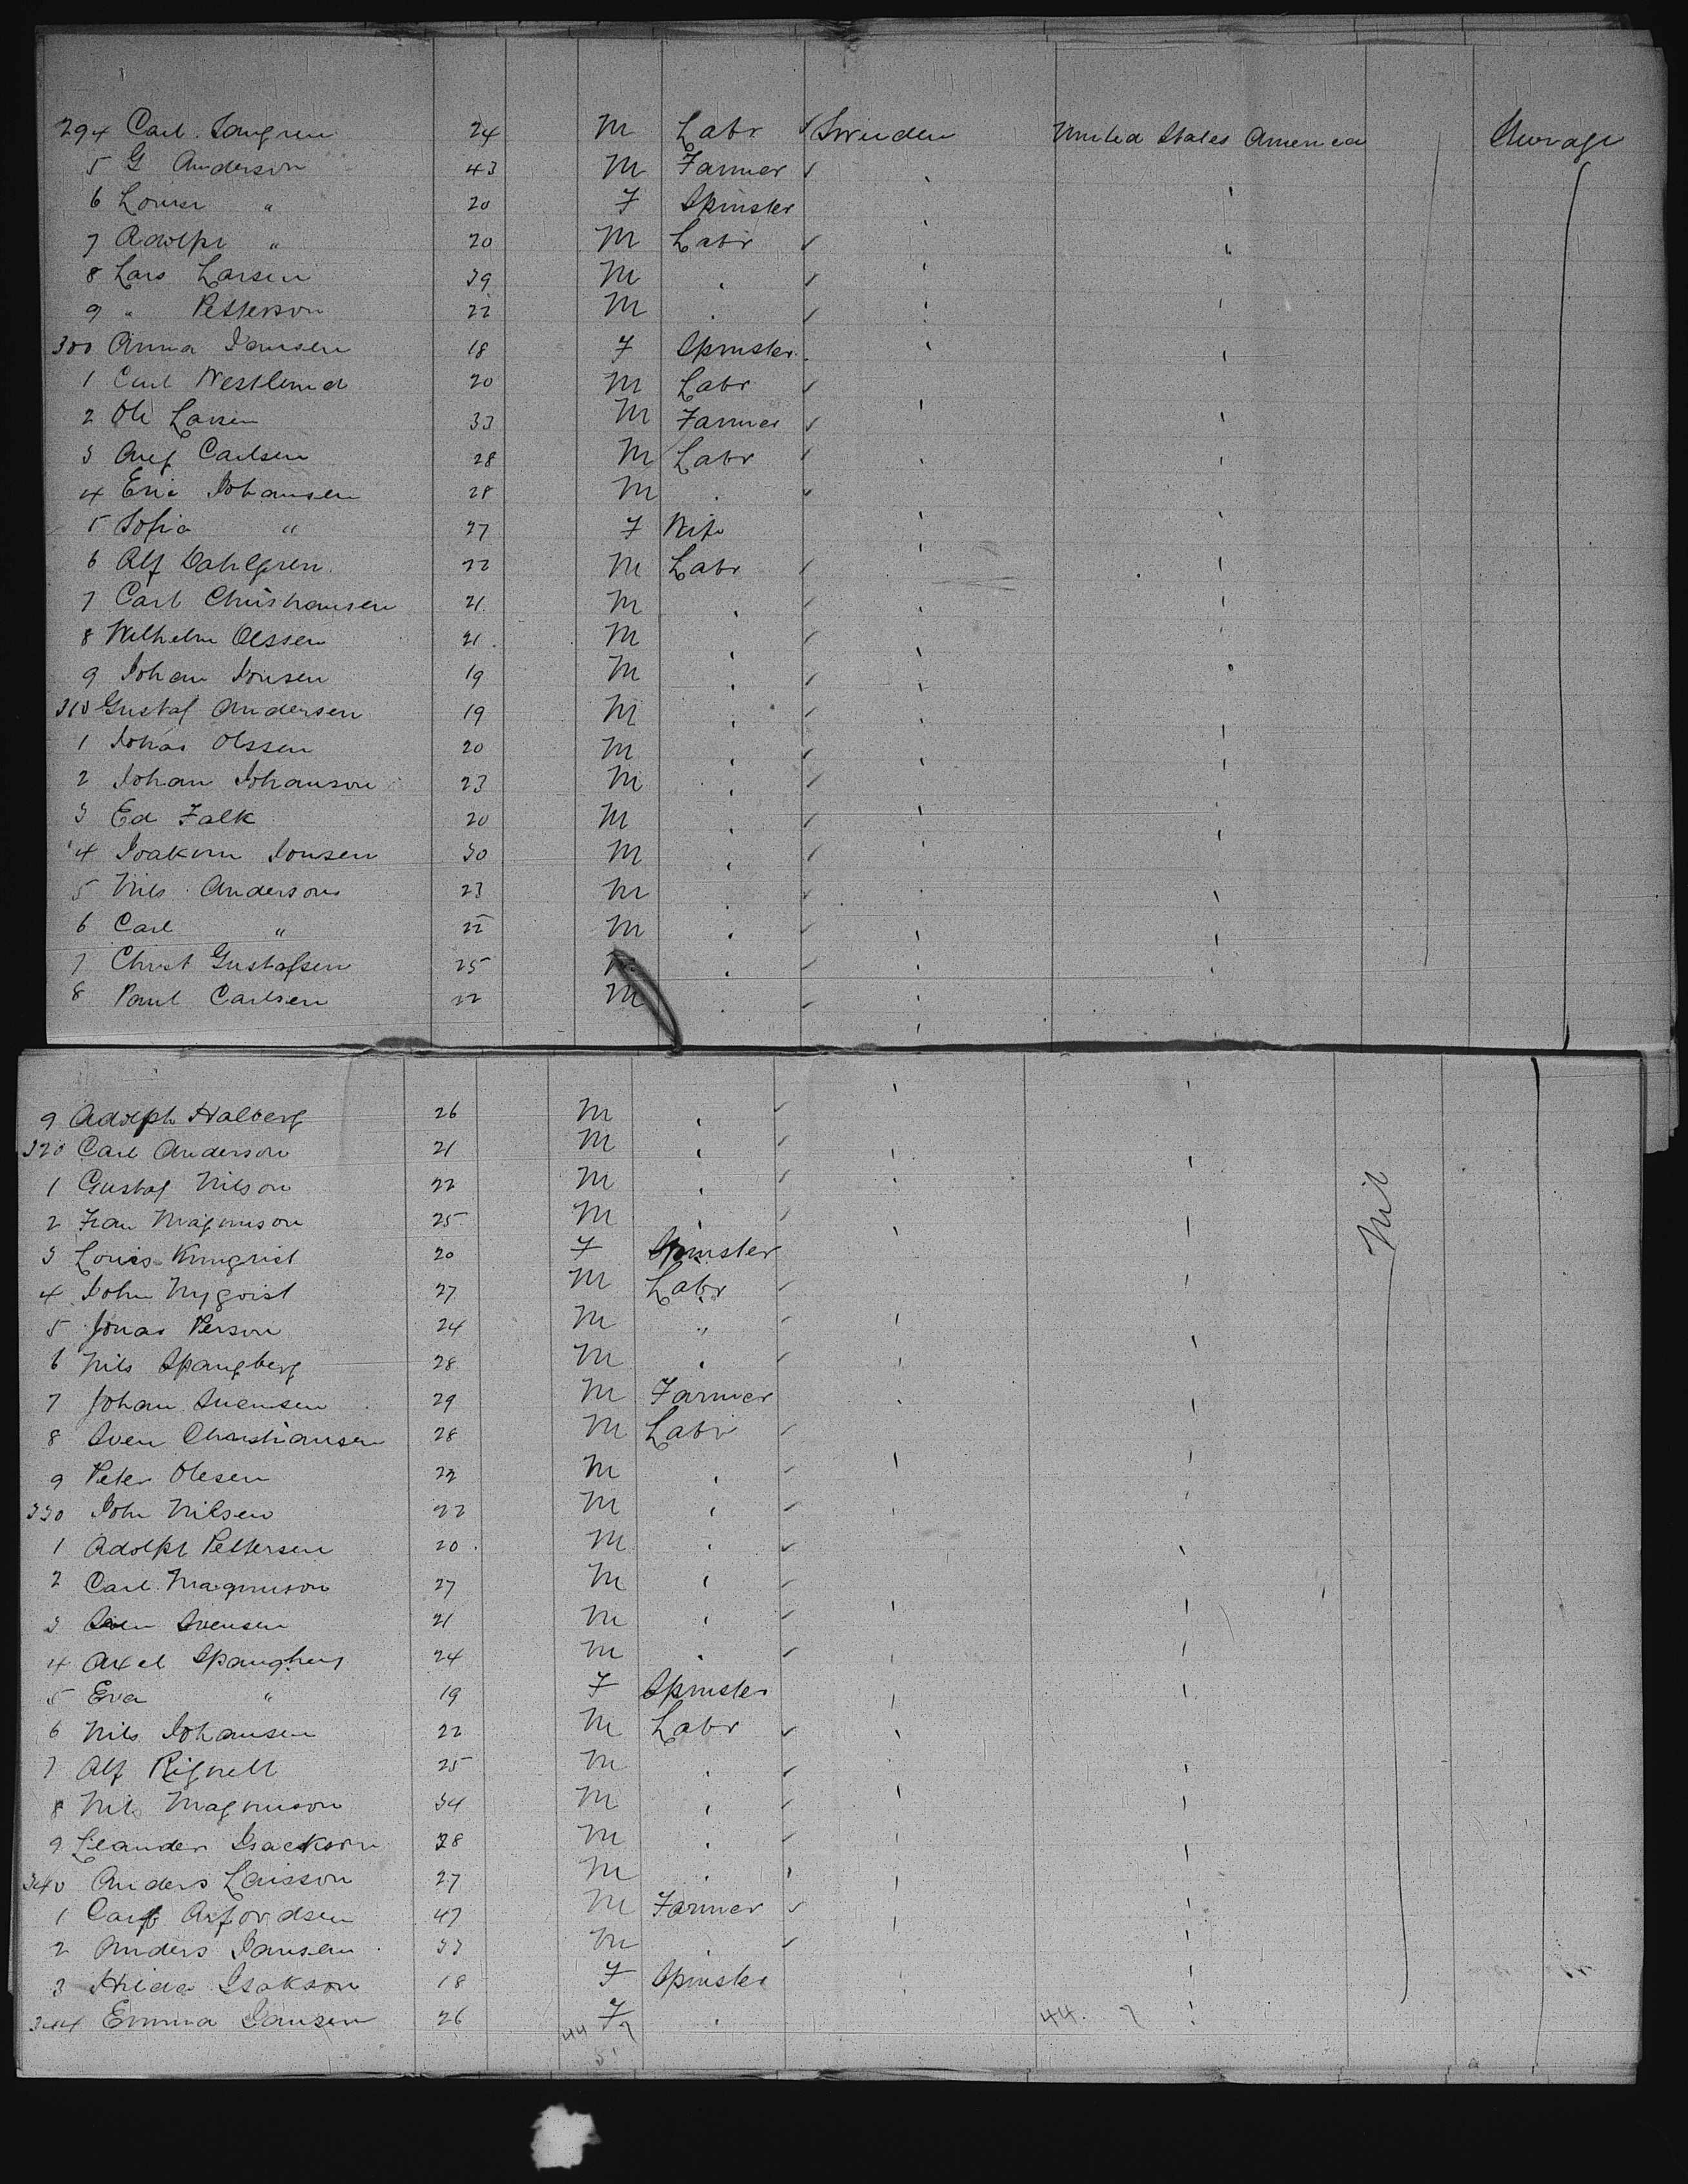 294 Carl Langren 24 M Labr Sweeden United States America Steerage
5 G Anderson 43 M Farmer
6 Louisa " 20 F Spinster
7 Adolph " 20 M Labr
8 Lars Larsen 39 M
9 " Petterson 22 M
300 Anna Jansen 18 F Spinster
1 Carl Westlund 20 M Labr
2 Ole Larsen 33 M Farmer
3 Aug Carlsen 28 M Labr
4 Eric Johansen 28 M
5 Sofia " 27 F Wife
6 Alf Dahlgren 22 M Labr
7 Carl Christiansen 21 M
8 Wilhelm Olssen 21 M
9 Johan Jonsen 19 M
310 Gustaf Andersen 19 M
1 Johas Olssen 20 M
2 Johan Johanson 23 M
3 Ed Falk 20 M
4 Joakim Jonsen 30 M
5 Nils Anderson 23 M
6 Carl " 22 M
7 Christ Gustafsen 25 M
8 Paul Carlsen 22 M
9 Adolph Halberg 26 M
320 Carl Anderson 21 M
1 Gustaf Nilson 22 M
2 Fran Magnuson 25 M
3 Louis 20 F Spinster
4 John Nyqvist 27 M Labr
5 Jonas Person 24 M "
6 Nils Spangberg 28 M
7 Johan Svensen 29 M Farmer
8 Sven Christiansen 28 M Labr
9 Peter Olesen 22 M
330 John Nilsen 22 M
1 Adolph Pettersen 20 M
2 Carl Magnuson 27 M
3 Sven Svensen 21 M
4 Axel Spangberg 24 M
5 Eva " 19 F Spinster
6 Nils Johansen 22 M Labr
7 Alf Rignell 25 M
8 Nils Magnuson 34 M
9 Leander Isackson 28 M
340 Anders Larsson 27 M
1 Carl 47 M Farmer
2 Anders Jansen 33 M
3 Hilda Isakson 18 F Spinster
344 Emma Jansen 26 F
44 7
44. 7
51
Nil